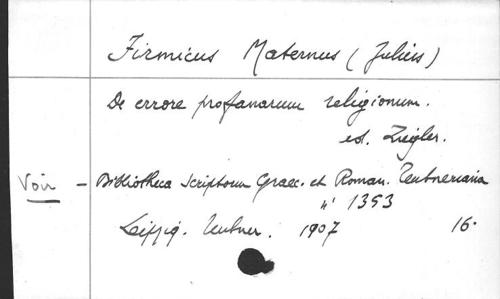 Firmicus Maternus (Julius)
De errore profanarum religionum.
ed. Ziegler.
Voir - Bibliotheca Scriptorum Graec. et Roman. Teubneriana
" 1353
Leipzig. Teubner. 1907 16.